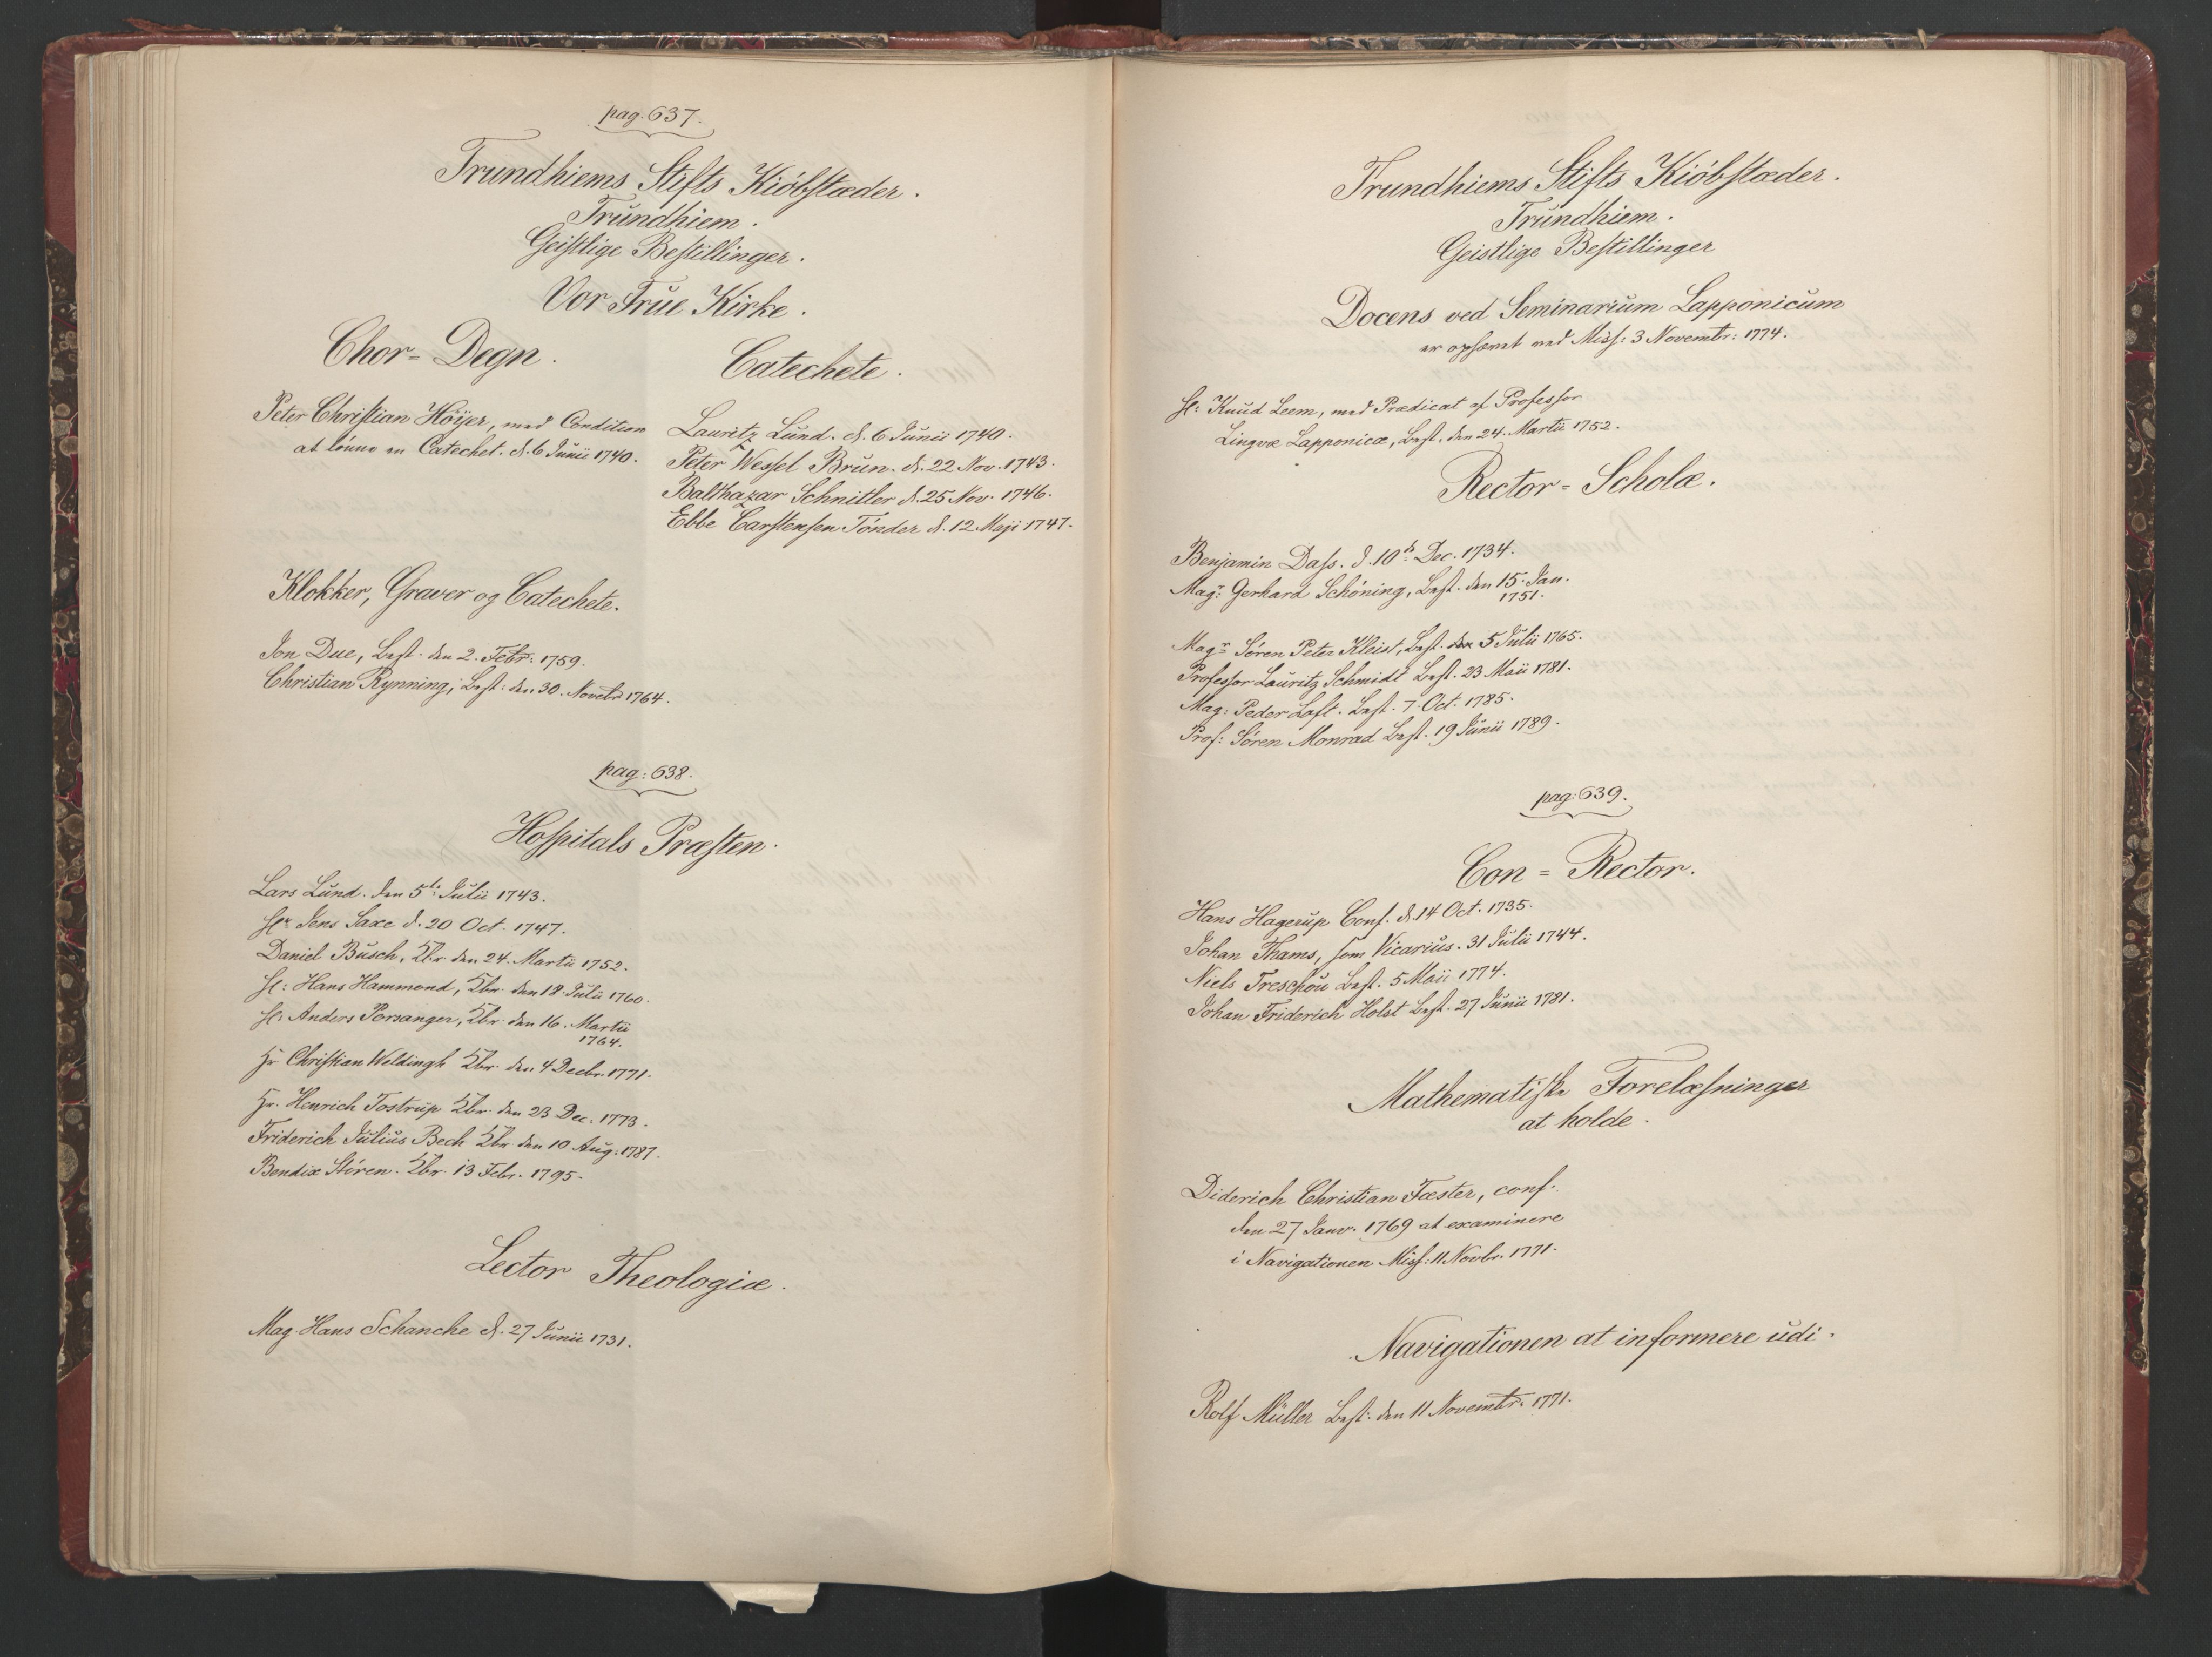 pag. 637.
Trundhiems Stifts Kiöbstæder.
Trundhiem.
Geistlige Bestillinger.
Vor Frue Kirke.
Chor-Degn.
Peter Christian Höyer, med Condition
at lönne en Catechet. d. 6 Junii 1740.
Catechete.
Lauritz Lund. d. 6 Junii 1740.
Peter Wessel Brun. d. 22 Nov. 1743.
Balthazar Schnitler d. 25 Nov. 1746.
Ebbe Carstensen Tönder d. 12 Maji 1747.
Klokker, Graver og Catechete.
Jon Due, Best. den 2. Febr. 1759.
Christian Rynning, Best: den 30. Novebr 1764.
pag: 638.
Hospitals Præsten.
Lars Lund. den 5t: Julii 1743.
Hr Jens Saxe d. 20 Oct. 1747.
Daniel Busch, Kbr den 24. Martii 1752.
Hr: Hans Hammond, Kbr. den 18. Julii 1760.
Hr: Anders Porsanger, Kbr. den 16. Martii
1764.
Hr Christian Weldingh Kbr. den 4 Decbr. 1771.
Hr. Henrich Tostrup Kbr. den 23 Dec. 1773.
Friderich Julius Bech Kbr. den 10 Aug: 1787.
Bendix Stören. Kbr. 13 Febr. 1795.
Lector Theologiæ.
Mag. Hans Schanche d. 27 Junii 1731.
Trundhiems Stifts Kiöbstæder.
Trundhiem.
Geistlige Bestillinger
Docens ved Seminarium Lapponicum
er ophævet ved Miss: 3 Novembr: 1774.
Hr: Knud Leem, med Prædicat af Professor
Lingvæ Lapponicæ, Best. den 24. Martii 1752.
Rector-Scholæ.
Benjamin Dass. d. 10de Dec. 1734.
Magr: Gerhard Schöning, Best. den 15. Jan.
1751.
Magr Sören Peter Kleist, Best. den 5 Julii 1765.
Professor Lauritz Schmidt Best. 23 Maii 1781.
Mag: Peder Loft. Best. 7. Oct. 1785.
Prof: Sören Monrad Best. 19 Junii 1789.
pag: 639.
Con-Rector.
Hans Hagerup Conf. d. 14 Oct. 1735.
Johan Thams, som Vicarius. 31 Julii 1744.
Niels Treschou Best. 5 Maii 1774.
Johan Friderich Holst Best. 27 Junii 1781.
Mathematiske Forelæsninger
at holde.
Diderich Christian Fæster, conf:
den 27 Janv. 1769 at examinere
i Navigationen Miss: 11 Novbr. 1771.
Navigationen at informere udi.
Rolf Müller Best: den 11 Novembr. 1771.